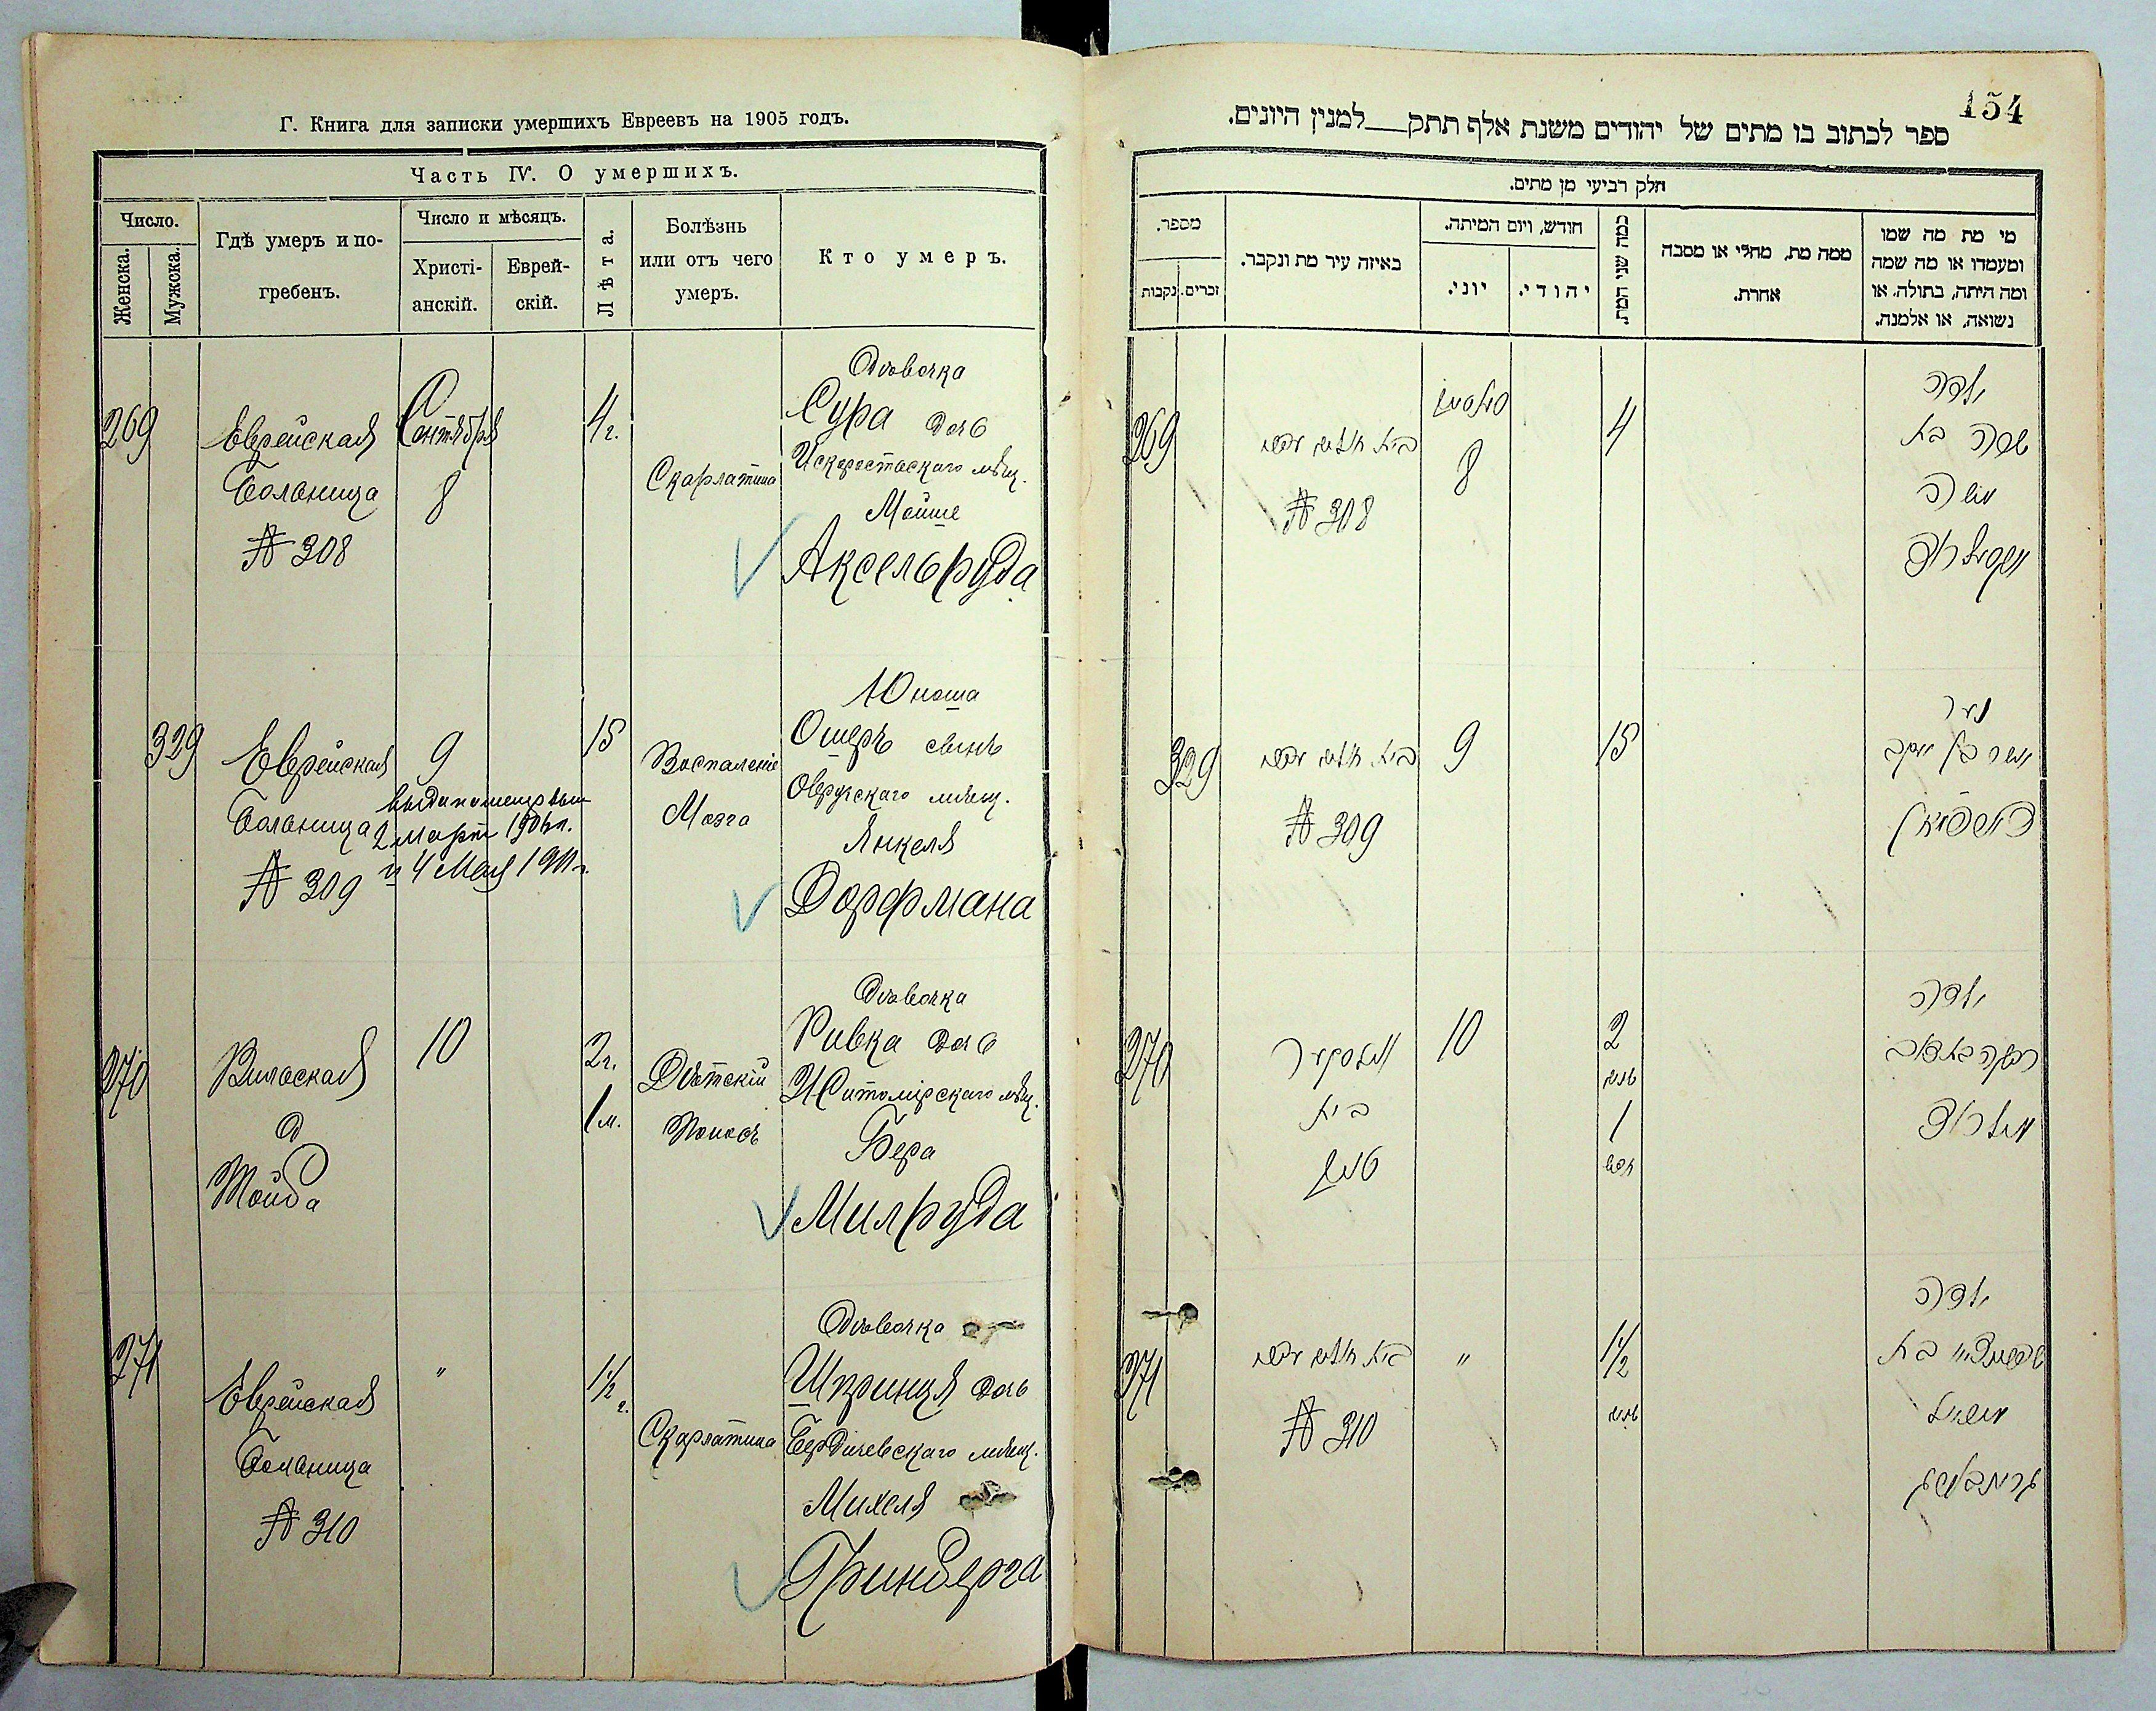 Г. Книга для записки умершихъ Евреевъ на 1905 годъ.
Часть IV. О умершихъ.
Число.
Женска.
Мужска.
Гдѣ умеръ и по-
гребенъ.
Число и мѣсяцъ.
Христі-
анскій.
Еврей-
скій.
Лѣта.
Болѣзнь
или отъ чего
умеръ.
Кто умеръ.
269
Еврейская
Больница
№ 308
Сентября
8
4 г.
Скарлатина
Дѣвочка
Сура дочь
Искоростскаго мѣщ.
Мойше
Аксельруда
329
Еврейская
Больница
№ 309
9
2 март 1906 г.
и 4 Мая 1911 г.
15
Воспаленіе
Мозга
Юноша
Ошеръ сынъ
Овручскаго мѣщ.
Янкеля
Дорфмана
270
Вильская
д
10
2 г.
1 м.
Дѣтскій
Поносъ
Дѣвочка
Ривка дочь
Житомірскаго мѣщ.
Бера
Милруда
271
Еврейская
Больница
№ 310
"
1½
г.
Скарлатина
Дѣвочка
Шпринця дочь
Бердичевскаго мѣщ.
Михеля
Гринберга
154
ספר לכתוב בו מתים של יהודים משנת אלף תתק למנין היונים.
חלק רביעי מן מתים.
מספר.
נקבות
זכרים.
באיזה עיר מת ונקבר.
חודש, ויום המיתה.
יוני.
יהודי.
כמה שני המת.
ממה מת, מחלי או מסבה
אחרת.
מי מת מה שמו
ומעמדו או מה שמה
ומה היתה, בתולה, או
נשואה, או אלמנה.
269
בית חולים
№ 308
8
4
ילדה
שרה בת
משה
אקסלרוד
329
בית חולים
№ 309
9
15
נער
אשר בן יעקב
דארפמאן
270
בית
10
2
שנים
1
חדש
ילדה
רבקה בת דוב
מילרוד
271
בית חולים
№ 310
"
1½
שנים
ילדה
שפרינצי בת
מיכל
גרינבערג